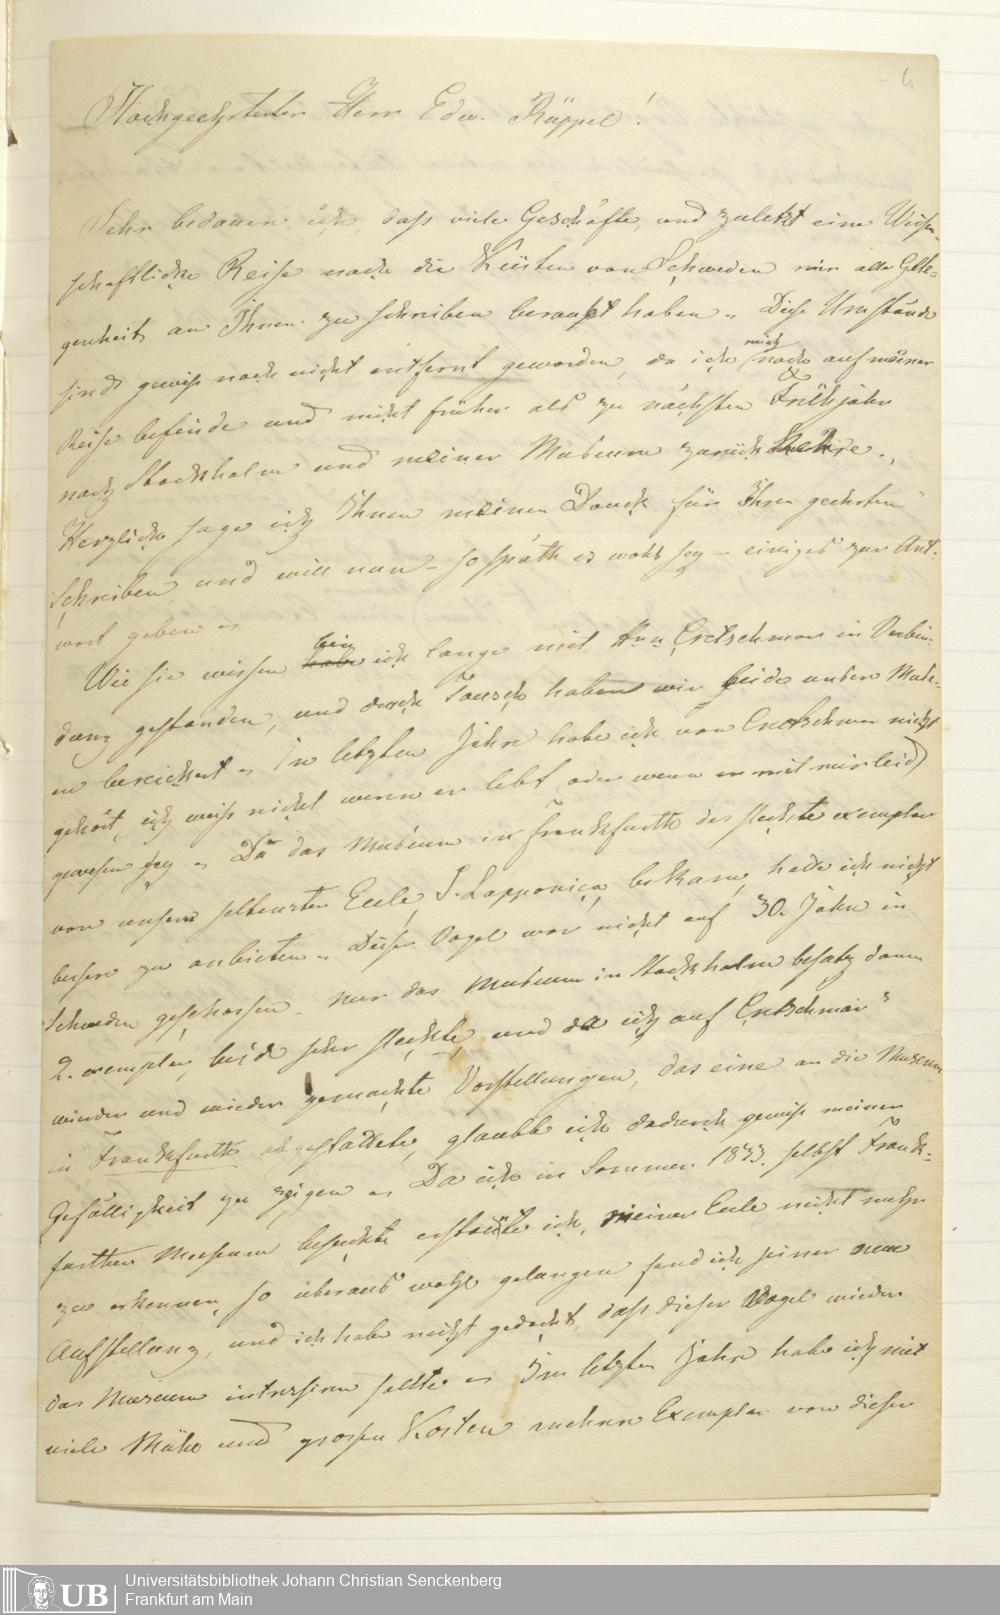 6.
Hochgeehrtester Herr Edw. Rüppel!
Sehr bedauere ich, dass viele Geschäfte, und zuletzt eine Wissen-
schaftliche Reise nach die Küsten von Schweden mir alle Gele-
genheit an Ihnen zu schreiben beraubt haben. Diese Umstände
sind gewiss noch nicht entfernt geworden, da ich mich noch auf meiner
Reise befinde und nicht früher als zu nächsten Frühjahr
nach Stockholm und meiner Museum zurück kehre.
Herzliche sage ich Ihnen meinen Danck für Ihren geehrten
Schreiben, und will nun - so späth es wohl sey - einiges zur Ant-
wort geben.
Wie Sie wissen habe bin ich lange mit Hrn Cretschmar in Verbin-
dung gestanden, und durch Tausch haben wir beide unsere Muse-
en bereichert. In letzten Jahre habe ich von Cretschmar nicht
gehört, ich weiss nicht wenn er lebt, oder wenn er mit mir leid
gewesen sey. Da das Museum in Frankfurth des slechte exemplar
von unsern seltensten Eule, S. Lapponica, bekam, hatte ich nicht
besser zu anbieten. Dieser Vogel war nicht auf 30. Jahre in
Schweden geschossen. Nur das Museum in Stockholm besatz dann
2. exemplar, beide sehr slechte, und da ich auf Cretschmar's
wieder und wieder gemachte Vorstellungen, das eine an die Museum
in Frankfurth abgestattete, glaubte ich dadurch gewiss meinen
Gefälligkeit zu zeigen. Da ich in Sommer 1833. selbst Frank-
further Museum besuchte erstaunte ich, meiner Eule nicht mehr
zu erkennen, so überaus wohl gelungen fand ich seiner neue
Aufstellung, und ich habe nicht gedacht, dass dieser Vogel wieder
das Museum intressiren sollte. Im letzten Jahre habe ich mit
viele Mühe und grossen Kosten mehrere Exemplar von dieser
UB
Universitätsbibliothek Johann Christian Senckenberg
Frankfurt am Main